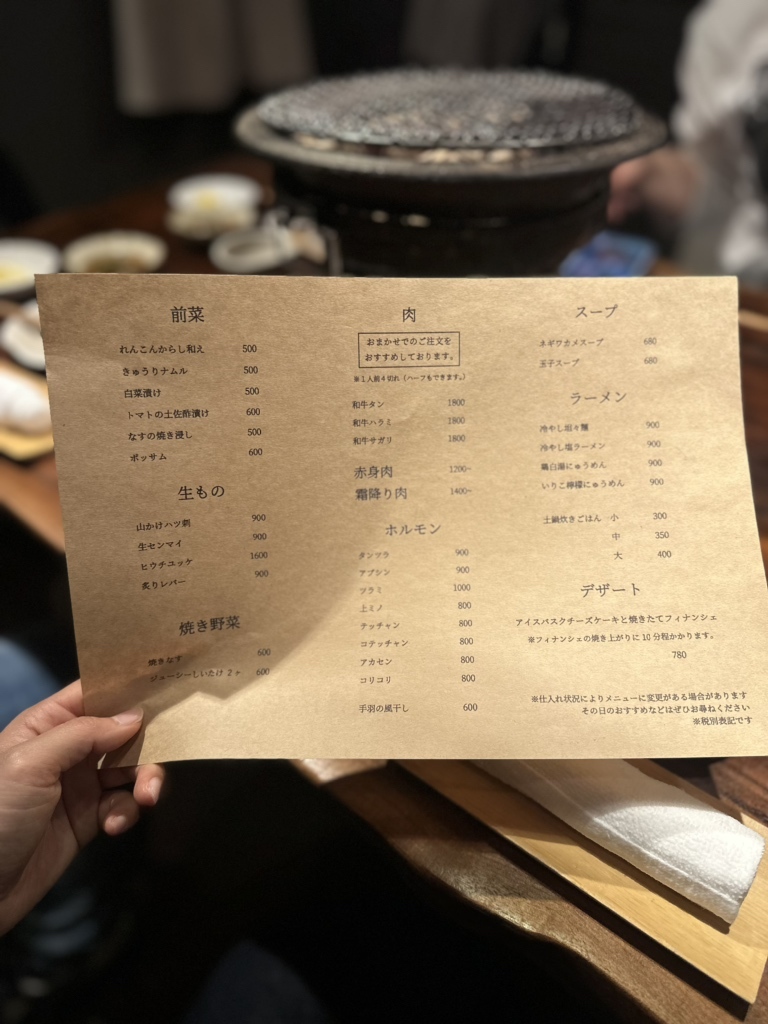 前菜
れんこんからし和え 500
きゅうりナムル 500
白菜漬け 500
トマトの土佐酢漬け 600
なすの焼き浸し 500
ポッサム 600
生もの
山かけハツ刺 900
生センマイ 900
ヒウチユッケ 1600
炙りレバー 900
焼き野菜
焼きなす 600
ジューシーしいたけ 2ヶ 600
肉
おまかせでのご注文を
おすすめしております。
※1人前4切れ（ハーフもできます。）
和牛タン 1800
和牛ハラミ 1800
和牛サガリ 1800
赤身肉 1200~
霜降り肉 1400~
ホルモン
タンツラ 900
アブシン 900
ツラミ 1000
上ミノ 800
テッチャン 800
コテッチャン 800
アカセン 800
コリコリ 800
手羽の風干し 600
スープ
ネギワカメスープ 680
玉子スープ 680
ラーメン
冷やし坦々麺 900
冷やし塩ラーメン 900
鶏白湯にゅうめん 900
いりこ檸檬にゅうめん 900
土鍋炊きごはん 小 300
中 350
大 400
デザート
アイスバスクチーズケーキと焼きたてフィナンシェ
※フィナンシェの焼き上がりに10分程かかります。
780
※仕入れ状況によりメニューに変更がある場合があります
その日のおすすめなどはぜひお尋ねください
※税別表記です